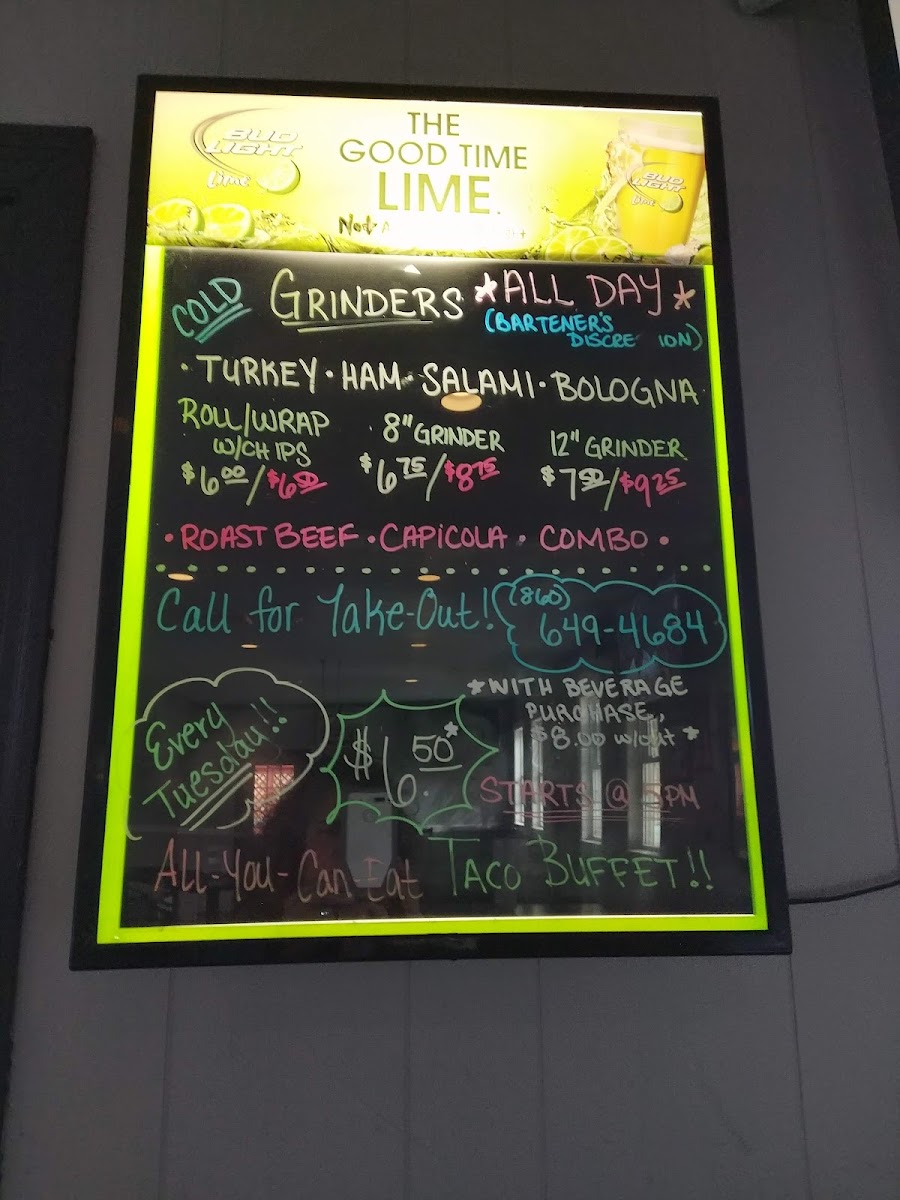 BUD LIGHT Lime
THE GOOD TIME LIME.
BUD LIGHT Lime
Not
COLD GRINDERS *ALL DAY*
(BARTENER'S DISCRE ION)
· TURKEY · HAM · SALAMI · BOLOGNA
ROLL/WRAP W/CHIPS
$6.00/$6.50
8" GRINDER
$6.75/$8.75
12" GRINDER
$7.50/$9.25
· ROAST BEEF · CAPICOLA · COMBO ·
Call for Take-Out! (860) 649-4684
Every Tuesday!!
$6.50*
*WITH BEVERAGE
PURCHASE,
$8.00 w/out *
STARTS @ 5PM
ALL-You-Can-Eat TACO BUFFET!!